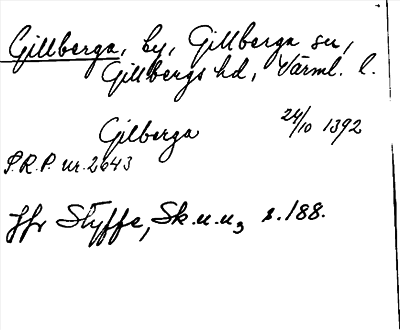 Gillberga, by, Gillberga sn,
Gillbergs hd, Värml. l.
Gilberga 24/10 1392
P.R.P. nr. 2643
Jfr Styffe, Sk.u.u, s. 188.